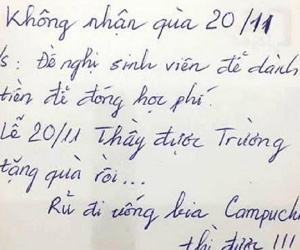 Không nhận quà 20/11
/s: Đề nghị sinh viên để dành
tiền để đóng học phí.
Lễ 20/11 Thầy được Trường
tặng quà rồi...
Rủ đi uống bia Campuch
thì được !!!